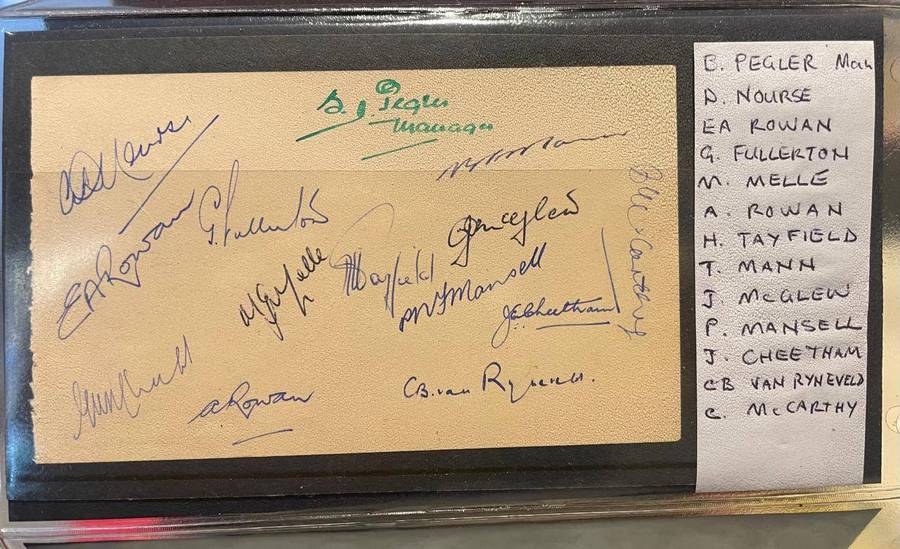 S. J. Pegler
Manager
A D Nourse
N B F Mann
EA Rowan
G. Fullerton
M G Melle
H Tayfield
D J McGlew
P N F Mansell
J. E. Cheetham
C N McCarthy
A. Rowan
C.B. van Ryneveld.
B. PEGLER Man
D. NOURSE
EA ROWAN
G. FULLERTON
M. MELLE
A. ROWAN
H. TAYFIELD
T. MANN
J. McGLEW
P. MANSELL
J. CHEETHAM
CB VAN RYNEVELD
C. McCARTHY